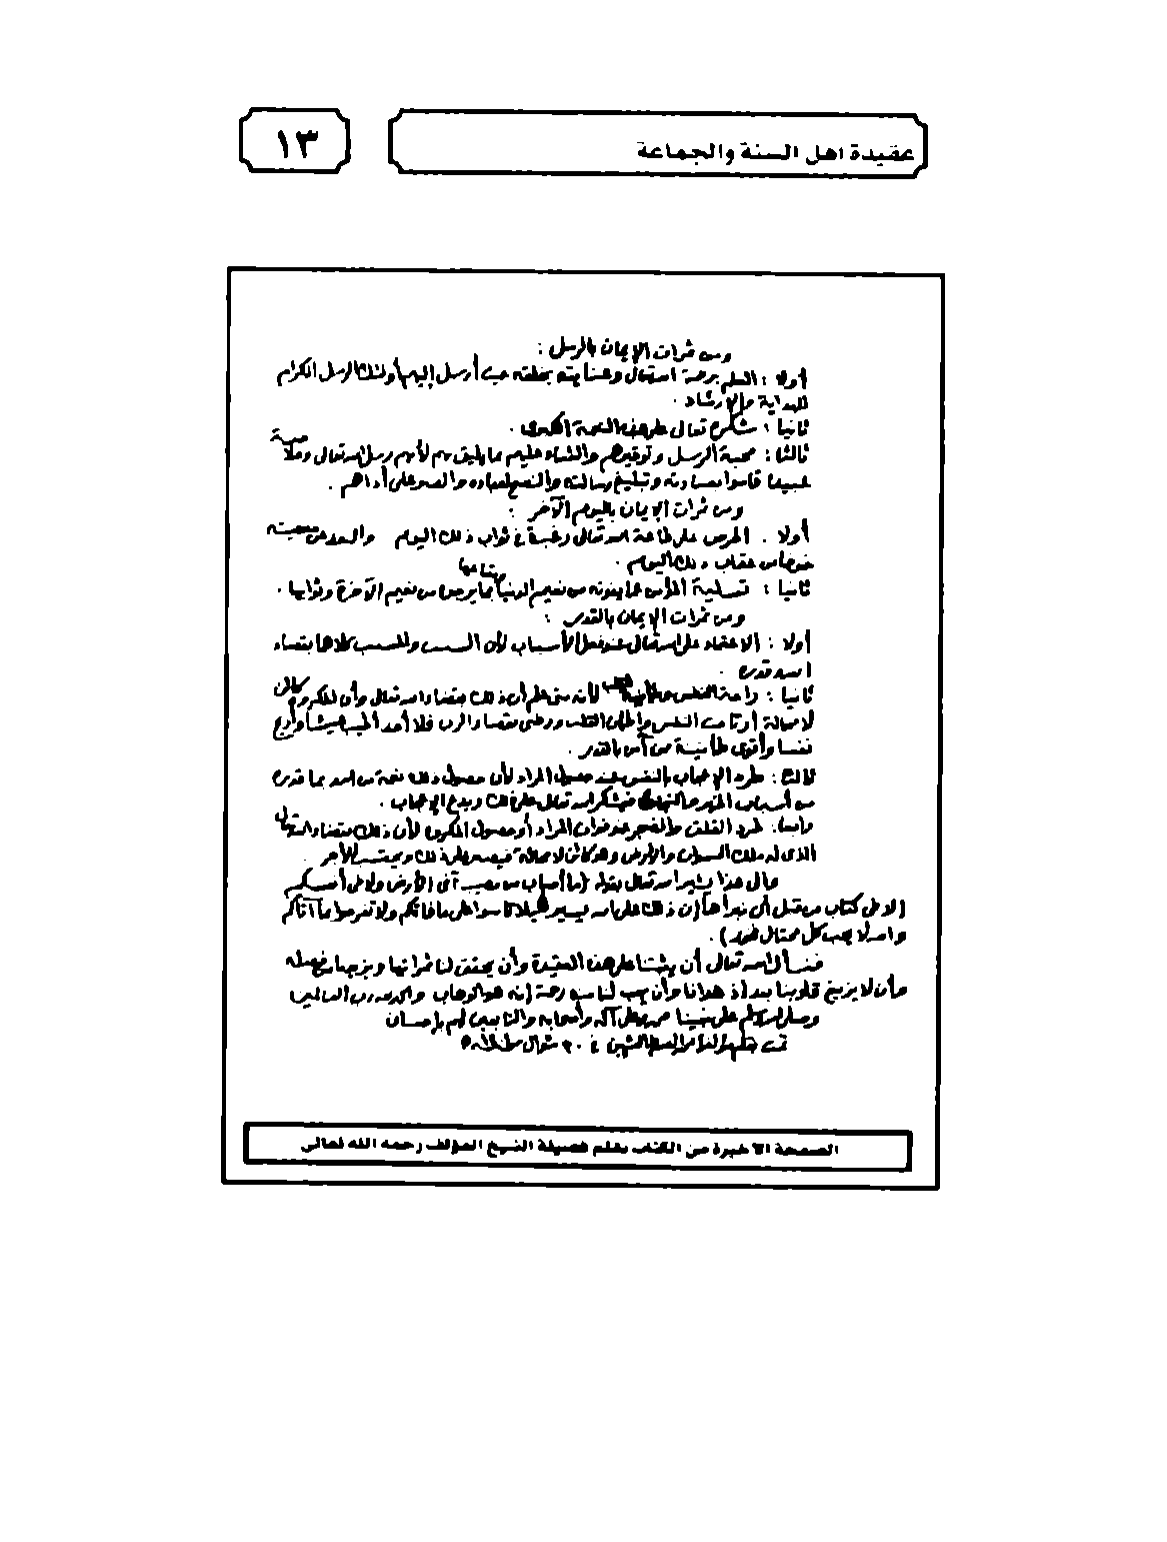 عقيدة اهل السنة والجماعة
١٣
ومن ثمرات الإيمان بالرسل :
أولا : العلم برحمة الله تعالى وعنايته بخلقه حيث أرسل إليهم أولئك الرسل الكرام
للهداية والإرشاد .
ثانيا : شكره تعالى على هذه النعمة الكبرى .
ثالثا : محبة الرسل وتوقيرهم والثناء عليهم بما يليق بهم لأنهم رسل الله تعالى وخلاصة
عبيده قاموا بعبادته وتبليغ رسالته والنصح لعباده والصبر على أذاهم .
ومن ثمرات الإيمان باليوم الآخر :
أولا . الحرص على طاعة الله تعالى رغبة في ثواب ذلك اليوم والبعد عن معصيته
خوفا من عقاب ذلك اليوم .
ثانيا : تسلية المؤمن عما يفوته من نعيم الدنيا ومتاعها بما يرجوه من نعيم الآخرة وثوابها .
ومن ثمرات الإيمان بالقدر :
أولا : الاعتماد على الله تعالى عند فعل الأسباب لأن السبب والمسبب كلاهما بقضاء
الله وقدره .
ثانيا : راحة النفس وطمأنينة القلب لأنه متى علم أن ذلك بقضاء الله تعالى وأن المكروه كائن
لا محالة ارتاحت النفس واطمأن القلب ورضي بقضاء الرب فلا أحد أطيب عيشا وأريح
نفسا وأقوى طمأنينة ممن آمن بالقدر .
ثالثا : طرد الإعجاب بالنفس عند حصول المراد لأن حصول ذلك نعمة من الله بما قدره
من أسباب الخير والنجاح فيشكر الله تعالى على ذلك ويدع الإعجاب .
رابعا . طرد القلق والضجر عند فوات المراد أو حصول المكروه لأن ذلك بقضاء الله تعالى
الذي له ملك السموات والأرض وهو كائن لا محالة فيصبر على ذلك ويحتسب الأجر .
وإلى هذا يشير الله تعالى بقوله (ما أصاب من مصيبة في الأرض ولا في أنفسكم
إلا في كتاب من قبل أن نبرأها إن ذلك على الله يسير لكيلا تأسوا على ما فاتكم ولا تفرحوا بما آتاكم
والله لا يحب كل مختال فخور) .
فنسأل الله تعالى أن يثبتنا على هذه العقيدة وأن يحقق لنا ثمراتها ويزيدنا من فضله
وأن لا يزيغ قلوبنا بعد إذ هدانا وأن يهب لنا منه رحمة إنه هو الوهاب والحمد لله رب العالمين
وصلى الله وسلم على نبينا محمد وعلى آله وأصحابه والتابعين لهم بإحسان
تمت بقلم مؤلفها محمد الصالح العثيمين في ٣٠ شوال سنة
الصفحة الاخيرة من الكتاب بقلم فضيلة الشيخ المؤلف رحمه الله تعالى